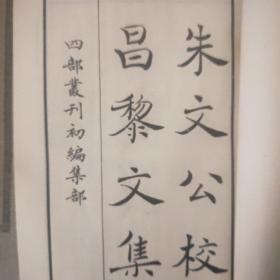 朱文公校
昌黎文集
四部叢刊初編集部